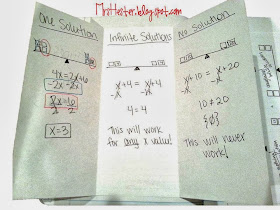 MrsHester.blogspot.com
One Solution
4x=2x+6
-2x -2x
2x=6
2 2
x=3
Infinite Solutions
x+4 = x+4
-x -x
4=4
This will work
for any x value!
No Solution
x+10 = x+20
-x -x
10≠20
{ø}
This will never
work!